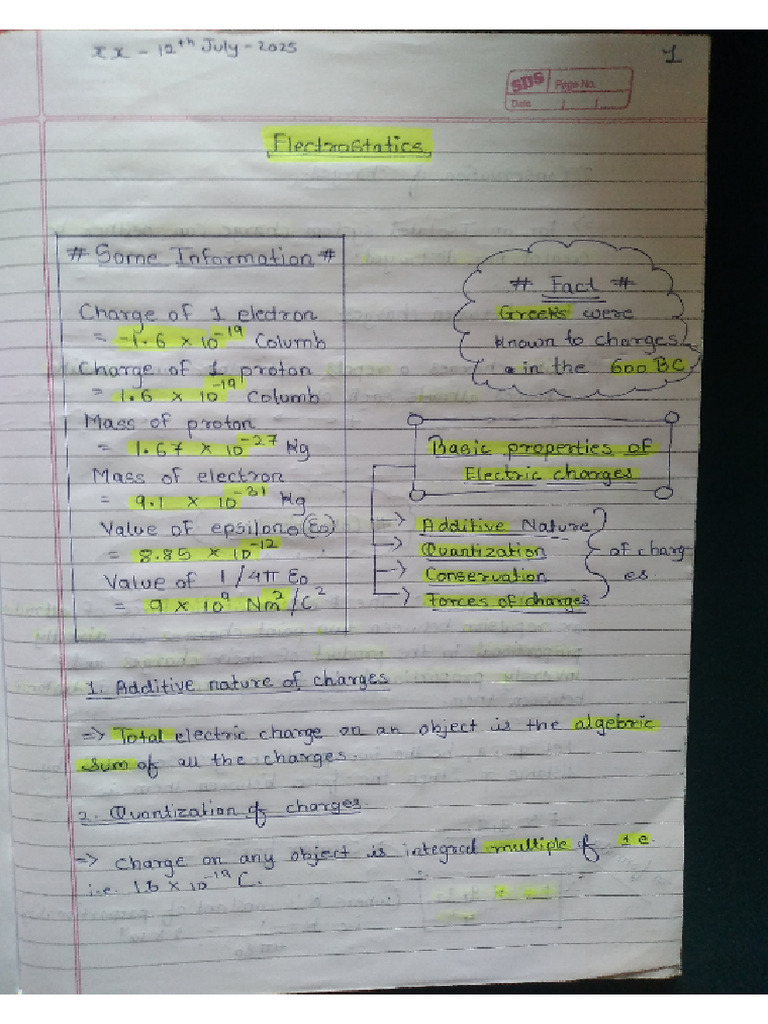 xx - 12th July - 2025
1
SDS Page No.
Date / /
Electrostatics
# Some Information #
Charge of 1 electron
= -1.6 × 10⁻¹⁹ Columb
Charge of 1 proton
= 1.6 × 10⁻¹⁹ Columb
Mass of proton
= 1.67 × 10⁻²⁷ Kg
Mass of electron
= 9.1 × 10⁻³¹ Kg
Value of epsilon₀ (ε₀)
= 8.85 × 10⁻¹²
Value of 1/4π ε₀
= 9 × 10⁹ Nm²/C²
# Fact #
Greeks were
known to charges
in the 600 BC
Basic properties of
Electric charges
→ Additive Nature
→ Quantization
→ Conservation
→ Forces of charges
of charg-
es.
1. Additive nature of charges
=> Total electric charge on an object is the algebric
sum of all the charges.
2. Quantization of charges
=> Charge on any object is integral multiple of 1e
i.e. 1.6 × 10⁻¹⁹ C.